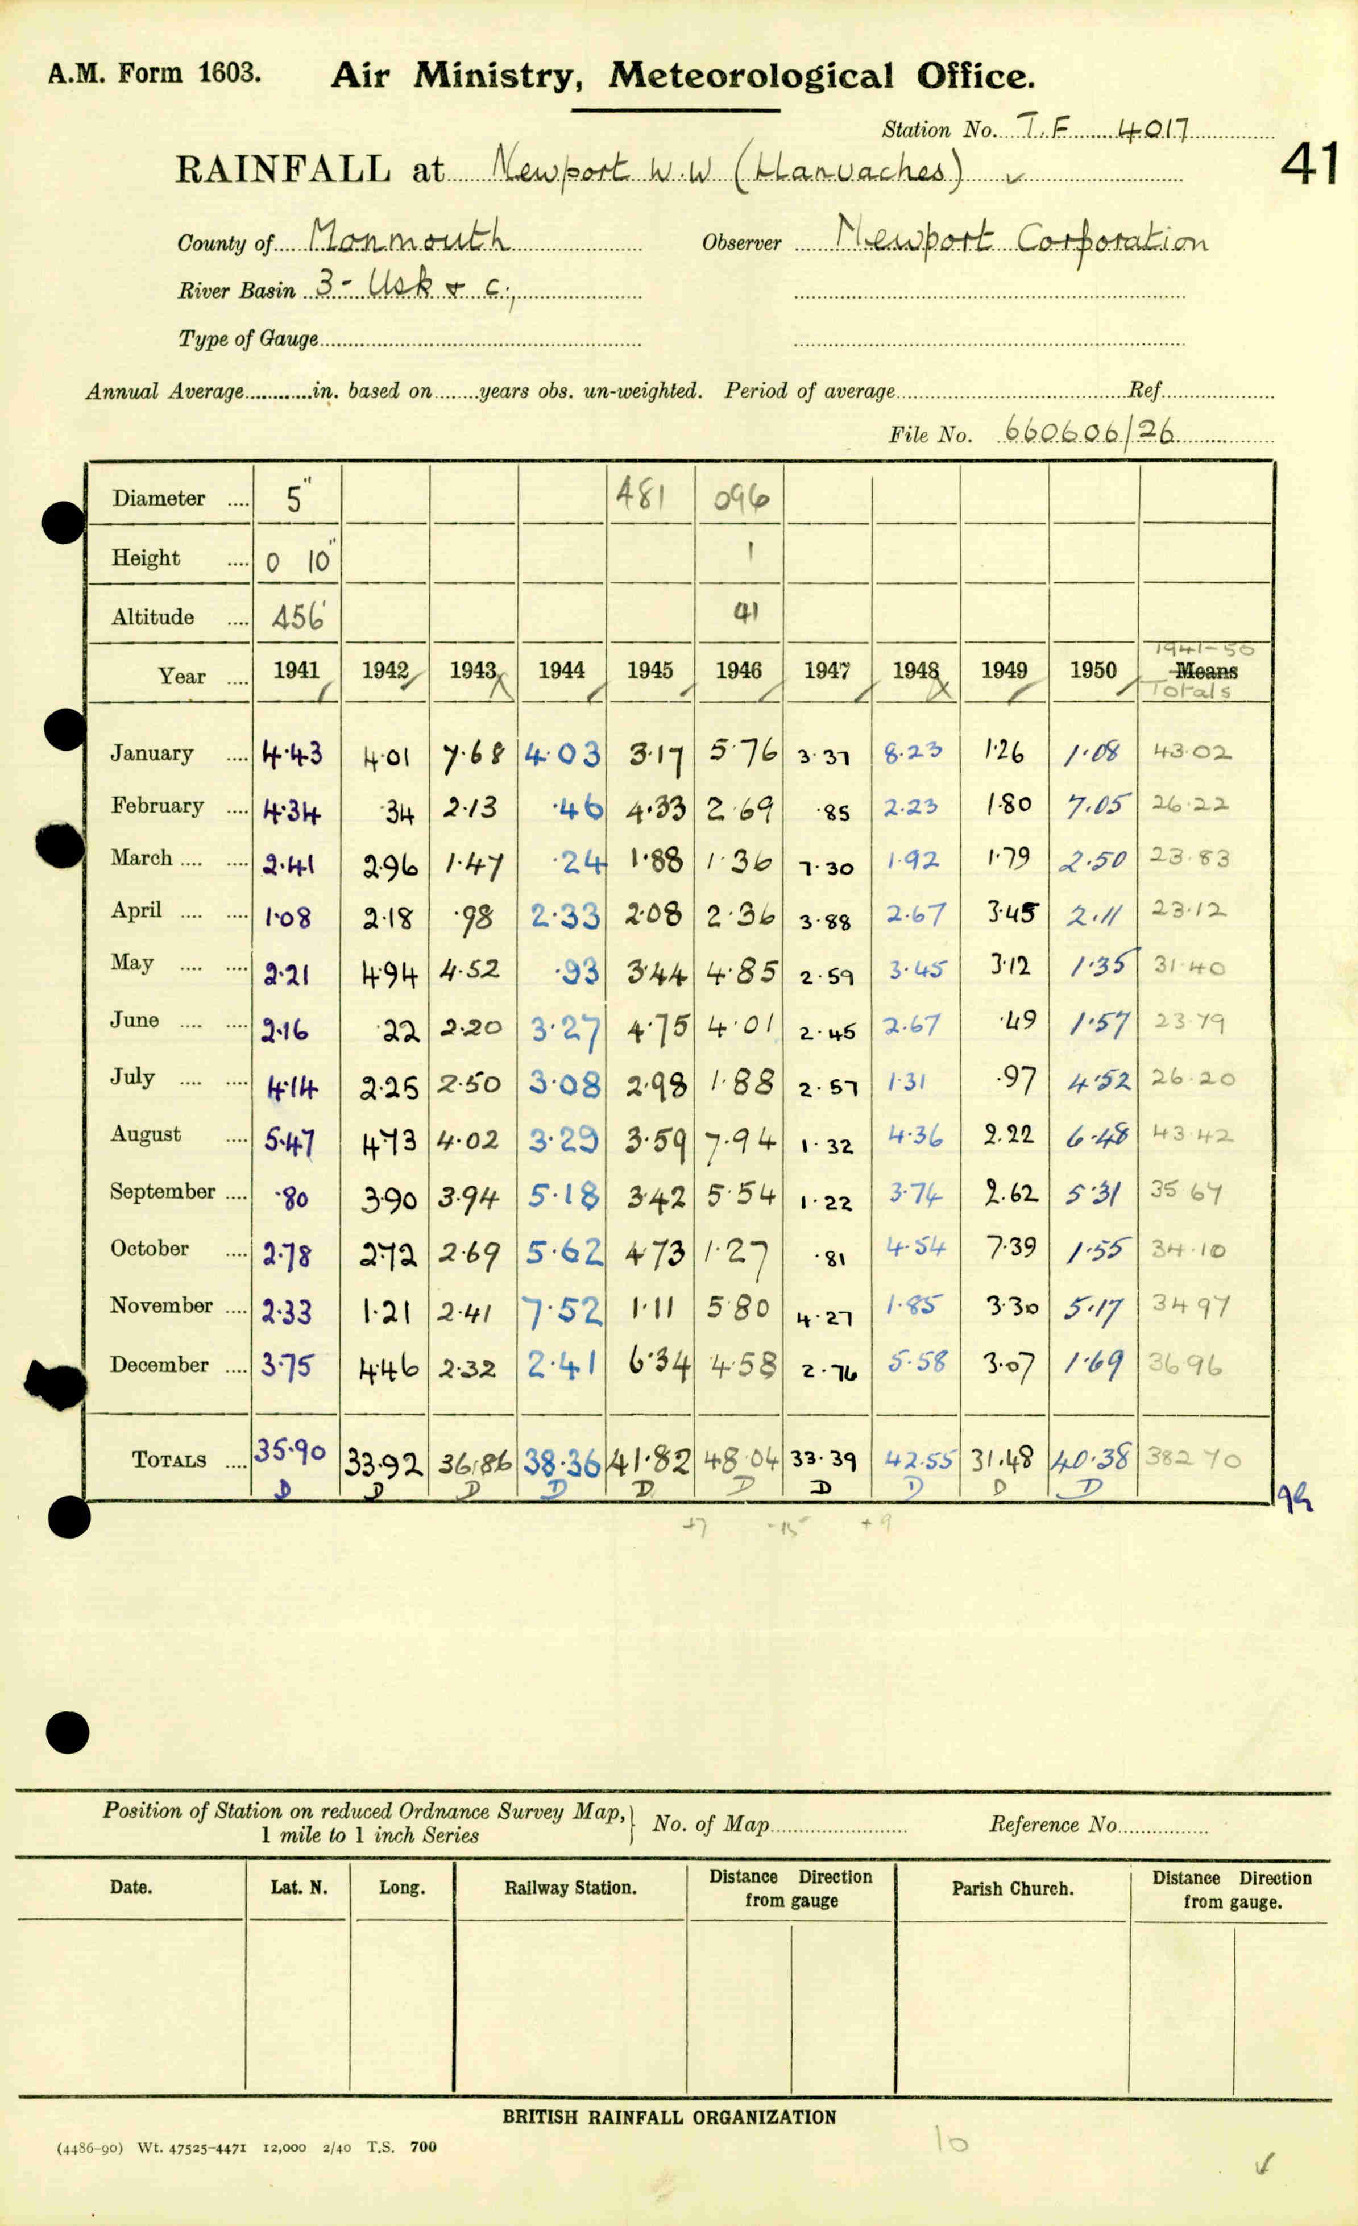 A.M. Form 1603. Air Ministry, Meteorological Office.
Station No. T.F 4017
RAINFALL at Newport W.W (Llanvaches) ✓ 41
County of Monmouth Observer Newport Corporation
River Basin 3 - Usk & c.,
Type of Gauge
Annual Average in. based on years obs. un-weighted. Period of average Ref.
File No. 660606/26
Diameter .... 5" 481 096
Height .... 0 10" 1
Altitude .... 456' 41
1941-50
Year .... 1941 1942 1943 1944 1945 1946 1947 1948 1949 1950 Means
Totals
January .... 4.43 4.01 7.68 4.03 3.17 5.76 3.37 8.23 1.26 1.08 43.02
February .... 4.34 .34 2.13 .46 4.33 2.69 .85 2.23 1.80 7.05 26.22
March .... .... 2.41 2.96 1.47 .24 1.88 1.36 7.30 1.92 1.79 2.50 23.83
April .... .... 1.08 2.18 .98 2.33 2.08 2.36 3.88 2.67 3.45 2.11 23.12
May .... .... 2.21 4.94 4.52 .93 3.44 4.85 2.59 3.45 3.12 1.35 31.40
June .... .... 2.16 .22 2.20 3.27 4.75 4.01 2.45 2.67 .49 1.57 23.79
July .... .... 4.14 2.25 2.50 3.08 2.98 1.88 2.57 1.31 .97 4.52 26.20
August .... 5.47 4.73 4.02 3.29 3.59 7.94 1.32 4.36 2.22 6.48 43.42
September .... .80 3.90 3.94 5.18 3.42 5.54 1.22 3.74 2.62 5.31 35.67
October .... 2.78 2.72 2.69 5.62 4.73 1.27 .81 4.54 7.39 1.55 34.10
November .... 2.33 1.21 2.41 7.52 1.11 5.80 4.27 1.85 3.30 5.17 34.97
December .... 3.75 4.46 2.32 2.41 6.34 4.58 2.76 5.58 3.07 1.69 36.96
TOTALS .... 35.90 33.92 36.86 38.36 41.82 48.04 33.39 42.55 31.48 40.38 382.70
D D D D D D D D D D
+7 -15 +9
Position of Station on reduced Ordnance Survey Map, } No. of Map Reference No.
1 mile to 1 inch Series
Date. Lat. N. Long. Railway Station. Distance Direction from gauge Parish Church. Distance Direction from gauge.
BRITISH RAINFALL ORGANIZATION
(4486-90) Wt. 47525-4471 12,000 2/40 T.S. 700
10 ✓